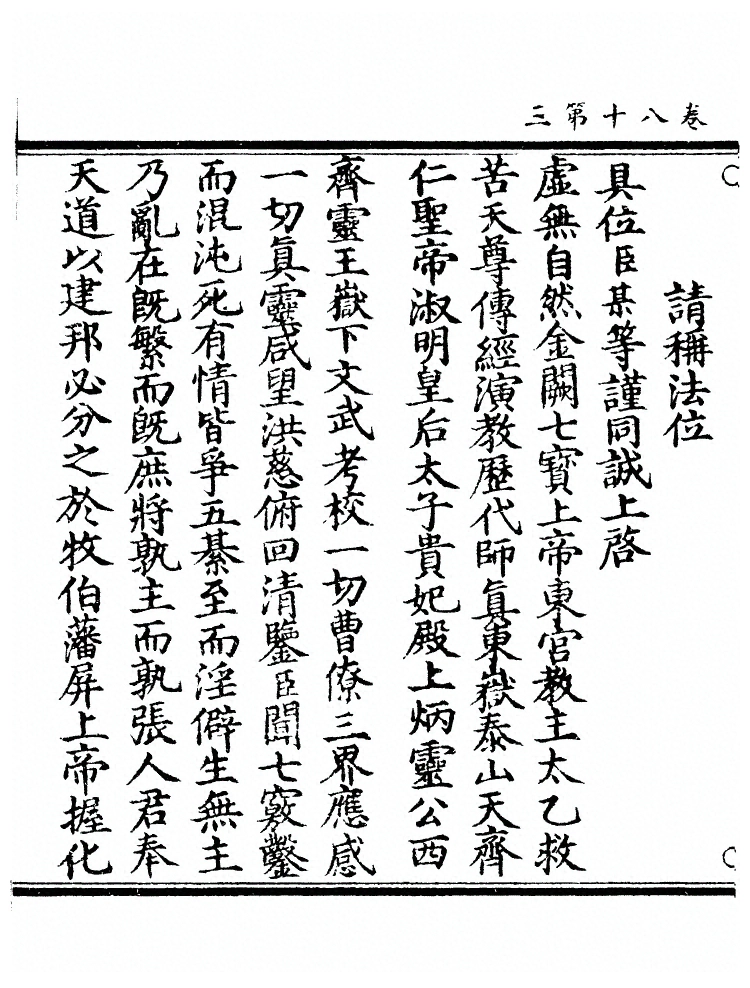 卷八十第三
請稱法位
具位臣某等謹同誠上啓
虛無自然金闕七寶上帝東宮教主太乙救
苦天尊傳經演教歷代師眞東嶽泰山天齊
仁聖帝淑明皇后太子貴妃殿上炳靈公西
齊靈王嶽下文武考校一切曹僚三界應感
一切眞靈咸望洪慈俯回清鑒臣聞七竅鑿
而混沌死有情皆爭五綦至而淫僻生無主
乃亂在旣繁而旣庶將孰主而孰張人君奉
天道以建邦必分之於牧伯藩屏上帝握化